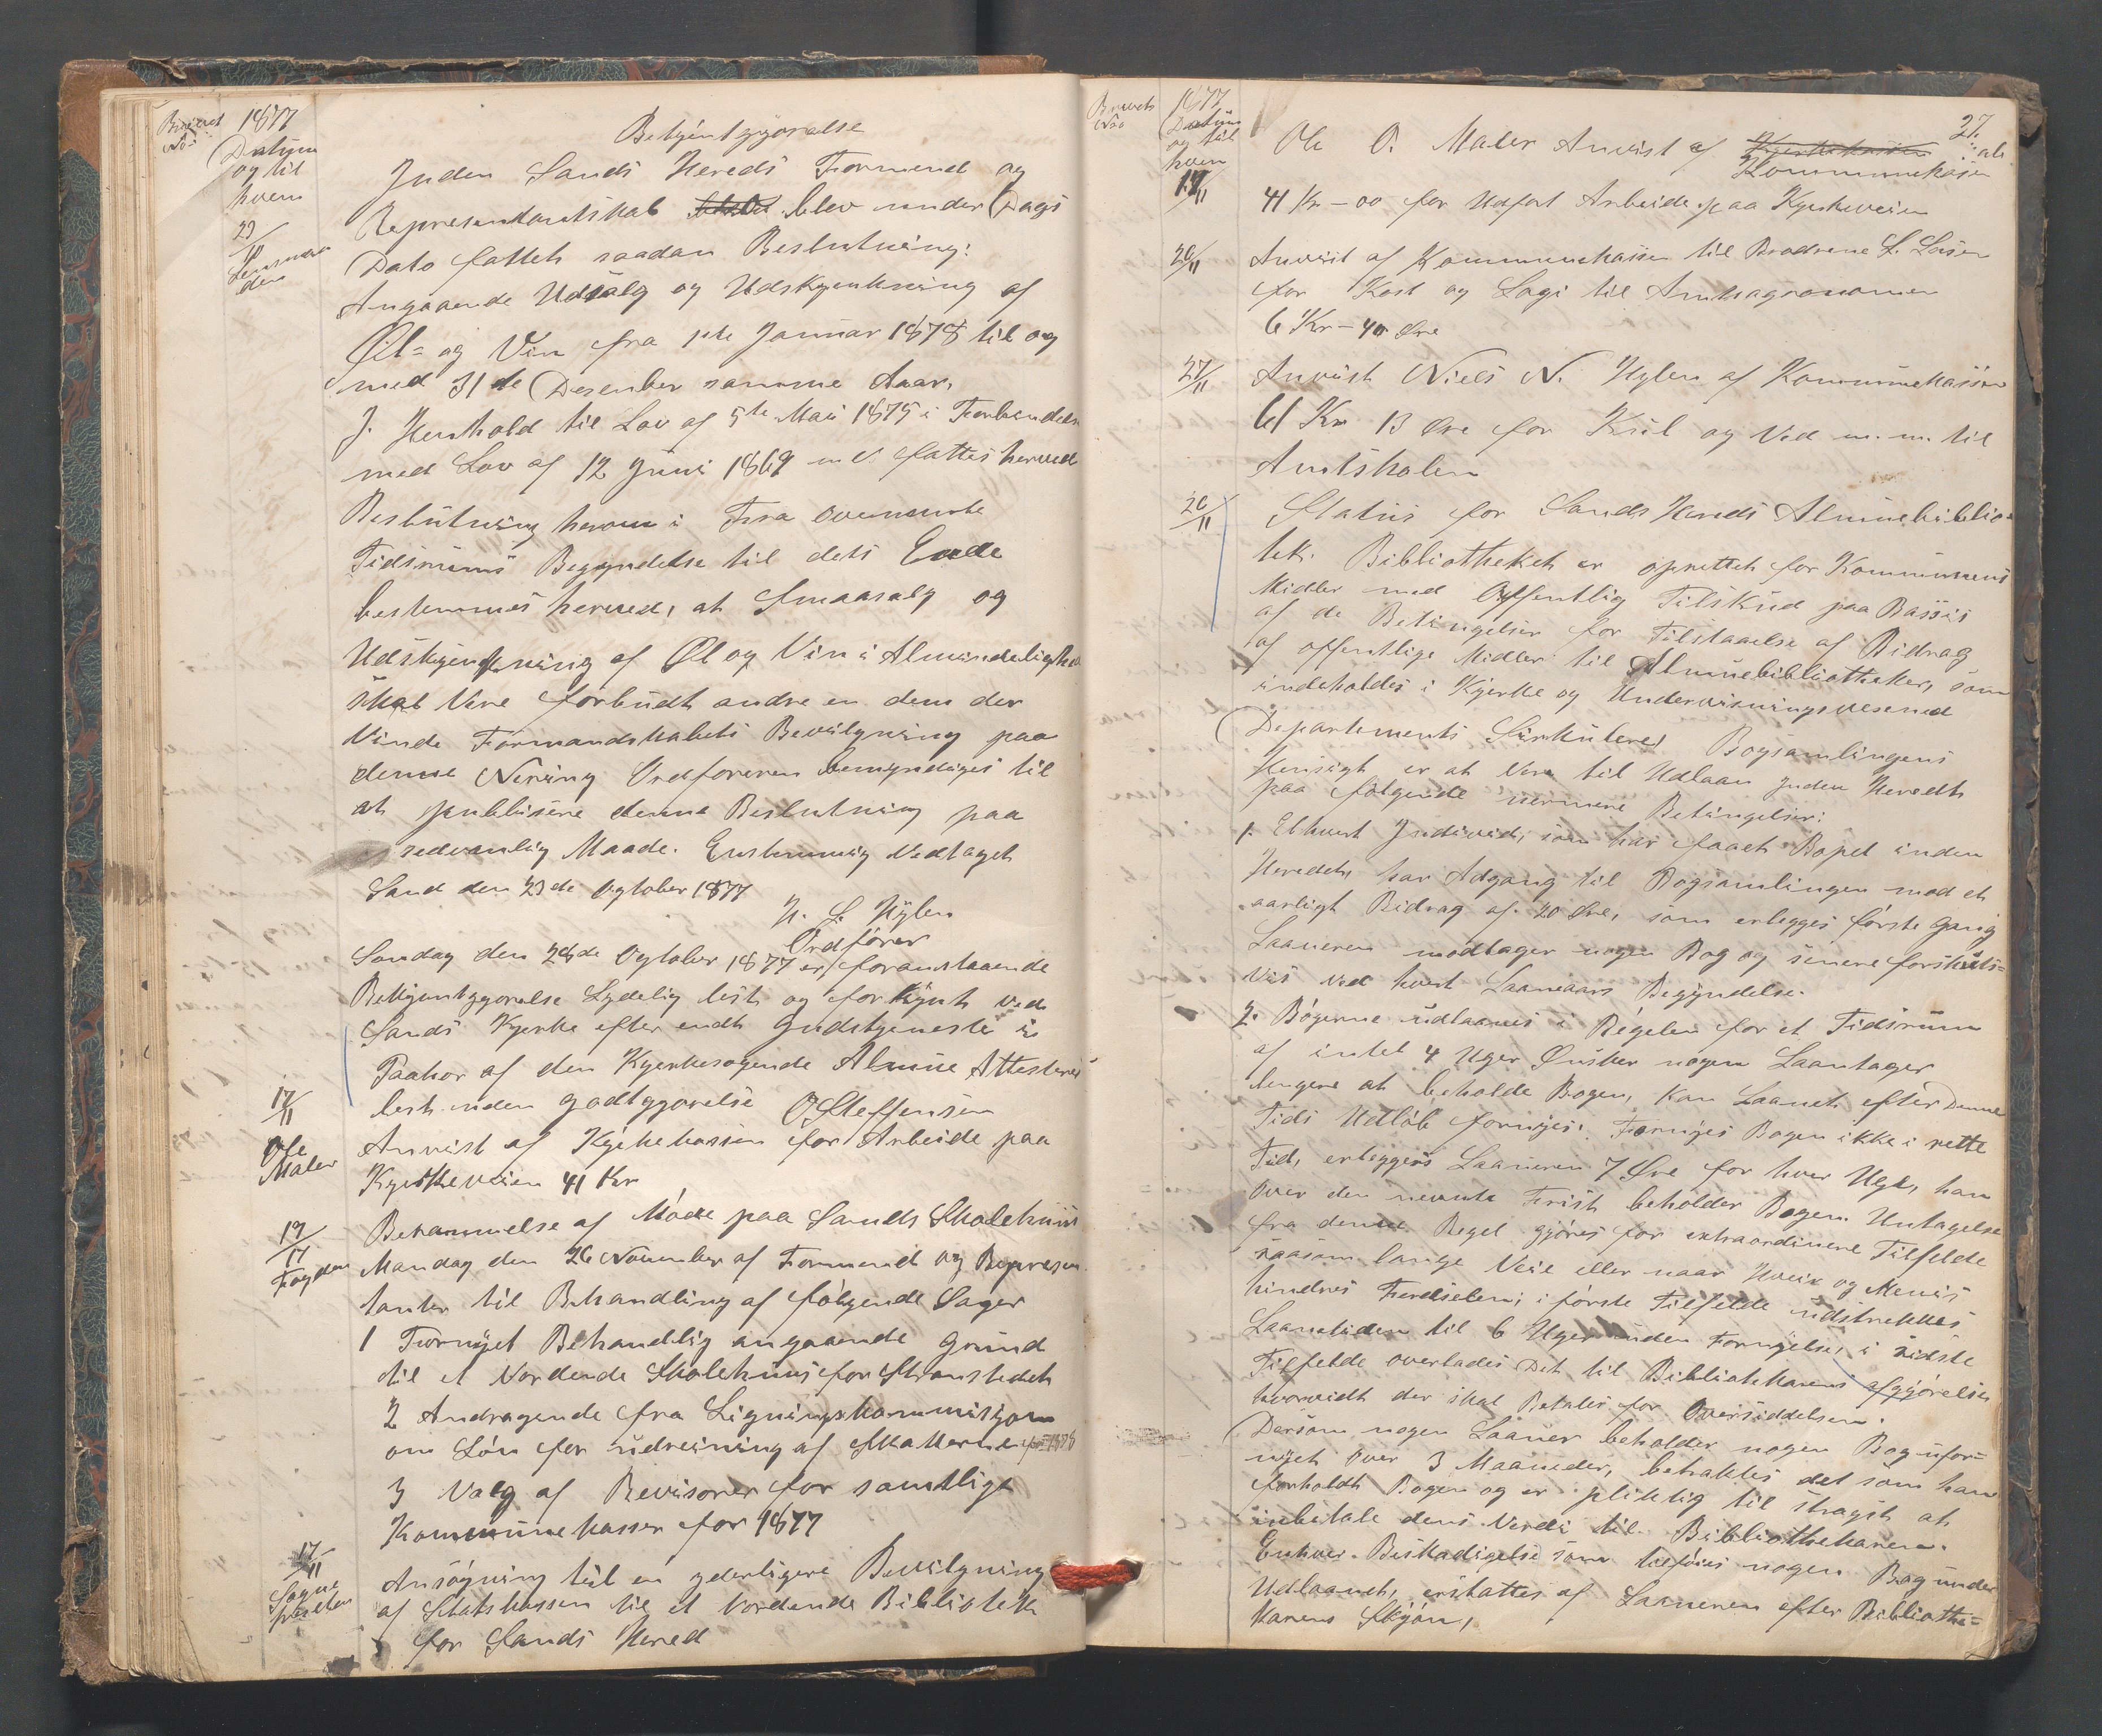 Brevets No
1877
Datum
og til
hvem
Bekjentgjorelse
Inden Sands Hereds Formend og
23/10
Representantskab blev under Dags
Lensman
den
Dato fattet saadan Beslutning:
Angaaende Udsalg og Udskjenkning af
Øil= og Vin fra 1ste Januar 1878 til og
med 31de Desember samme Aaar,
J. Henhold til Lov af 5te Mai 1875 i Forbindelse
med Lov af 12 Juni 1869 fattes herved
Beslutning herom i Fra ovennevnte
Tidsrums Begyndelse til dets Ende
bestemmes herved, at Smaasalg og
Udskjenkning af Øl og Vin i Almindelighed
skal Vere forbudt andre en dem der
Vinde Formandskabets Bevilgning paa
denne Nering Ordforeren bemyndiges til
at publisere denne Beslutning paa
sedvanlig Maade. Enstemmig Vedtaget
Sand den 23de Ogtober 1877
N. L. Hÿlen
Ordfører
Sondag den 28de Ogtober 1877 er foranstaaende
Bekjentgjorelse Lydelig lest og forkÿnt ved
Sands Kjerke efter endt Gudstjeneste i
Paahor af den Kjerkesogende Almue Attesteres
lest uden godtgjorelse O Steffensen
17/11
Ole
Maler
Anvist af Kjerkekassen for Arbeide paa
Kjerkeveien 41 Kr
19/11
Fogden
Berammelse af Møde paa Sands Skolehuus
Mandag den 26 November af Formend og Represen
tanter til Behandling af følgende Sager
1 Fornÿet Behandlig angaaende Grund
til et Vordende Skolehuus for Stranstedet
2 Andragende fra Ligningskommisjon
om Løn for udreining af Skatterne for 1878
3 Valg af Revisorer for samtlige
Kommunekasser for 1877
17/11
Sogne
presten
Ansøgning til en yderligere Bevilgning
af Statskassen til et Vordende Bibliotek
for Sands Hered
Brevets
No
1877
Datum
og til
hvem
27.
17/11
Ole O. Maler Anvist af Kjerkekassen
Kommunekasen
41 Kr - 00 for Udfort Arbeide paa Kjerkeveien
20/11
Anvist af Kommunekassen til Brodrene L. Lasen
for Kost og Logi til Amtsagronomen
6 Kr - 40 Øre
27/11
Anvist Niels N. Hylen af Kommunekassen
61 Kr 13 Øre for Kul og Ved m.m. til
Amtskolen
20/11
Status for Sands Hereds Almuebiblio=
tek. Bibliotheket er oprettet for Kommunens
Midler med Offentlig Tilskud paa Bassis
af de Betingelser for Tilstaaelse af Bidrag
af offentlige Midler til Almuebibliotheker, som
indeholdes i Kjerke og Undervisningsvesenets
Departements Sirkulere, Bogsamlingens
Hensigt er at Vere til Udlaan Inden Heredet
paa følgende nermere Betingelser:
1. Ethvert Individ, som har faaet Bopel inden
Heredet, har Adgang til Bogsamlingen mod et
aarligt Bidrag af 20 Øre, som erlegges første gang
Laaneren modtager nogen Bog og senere forskuts=
vis ved hvert Laaneaars Begyndelse.
2. Bøgerne udlaanes i Regelen for et Tidsrum
af intil 4 Uger Ønsker nogen Laantager
lengere at beholde Bogen, kan Laanet efter Denne
Tids Udløb fornyes. Fornyes Bogen ikke i rette
Tid, erlegges Laaneren 7 Øre for hver Uge, han
over den nevnte Frist beholder Bogen. Untagelse
fra denne Regel gjøres for extraordinere Tilfelde
saasom lange Veie eller naar Uveir og Menis
hindres Ferdselen; i første Tilfelde udstrekkes
Laanetiden til 6 Uger uden Fornyelse, i sidste
Tilfelde overlades Det til Bibliothekarens afgjørelse
hvorvidt der skal Betales for Oversiddelsen.
Dersom nogen Laaner beholder nogen Bog ufor=
nÿet over 3 Maaneder, betraktes det som han
forholdt Bogen og er pliktig til stragst at
inbetale dens Verdi til Bibliothekaren.
Enhver Beskadigelse som tilføies nogen Bog under
Udlaanet, erstattes af Laaneren efter Bibliothe=
karens Skjøn,